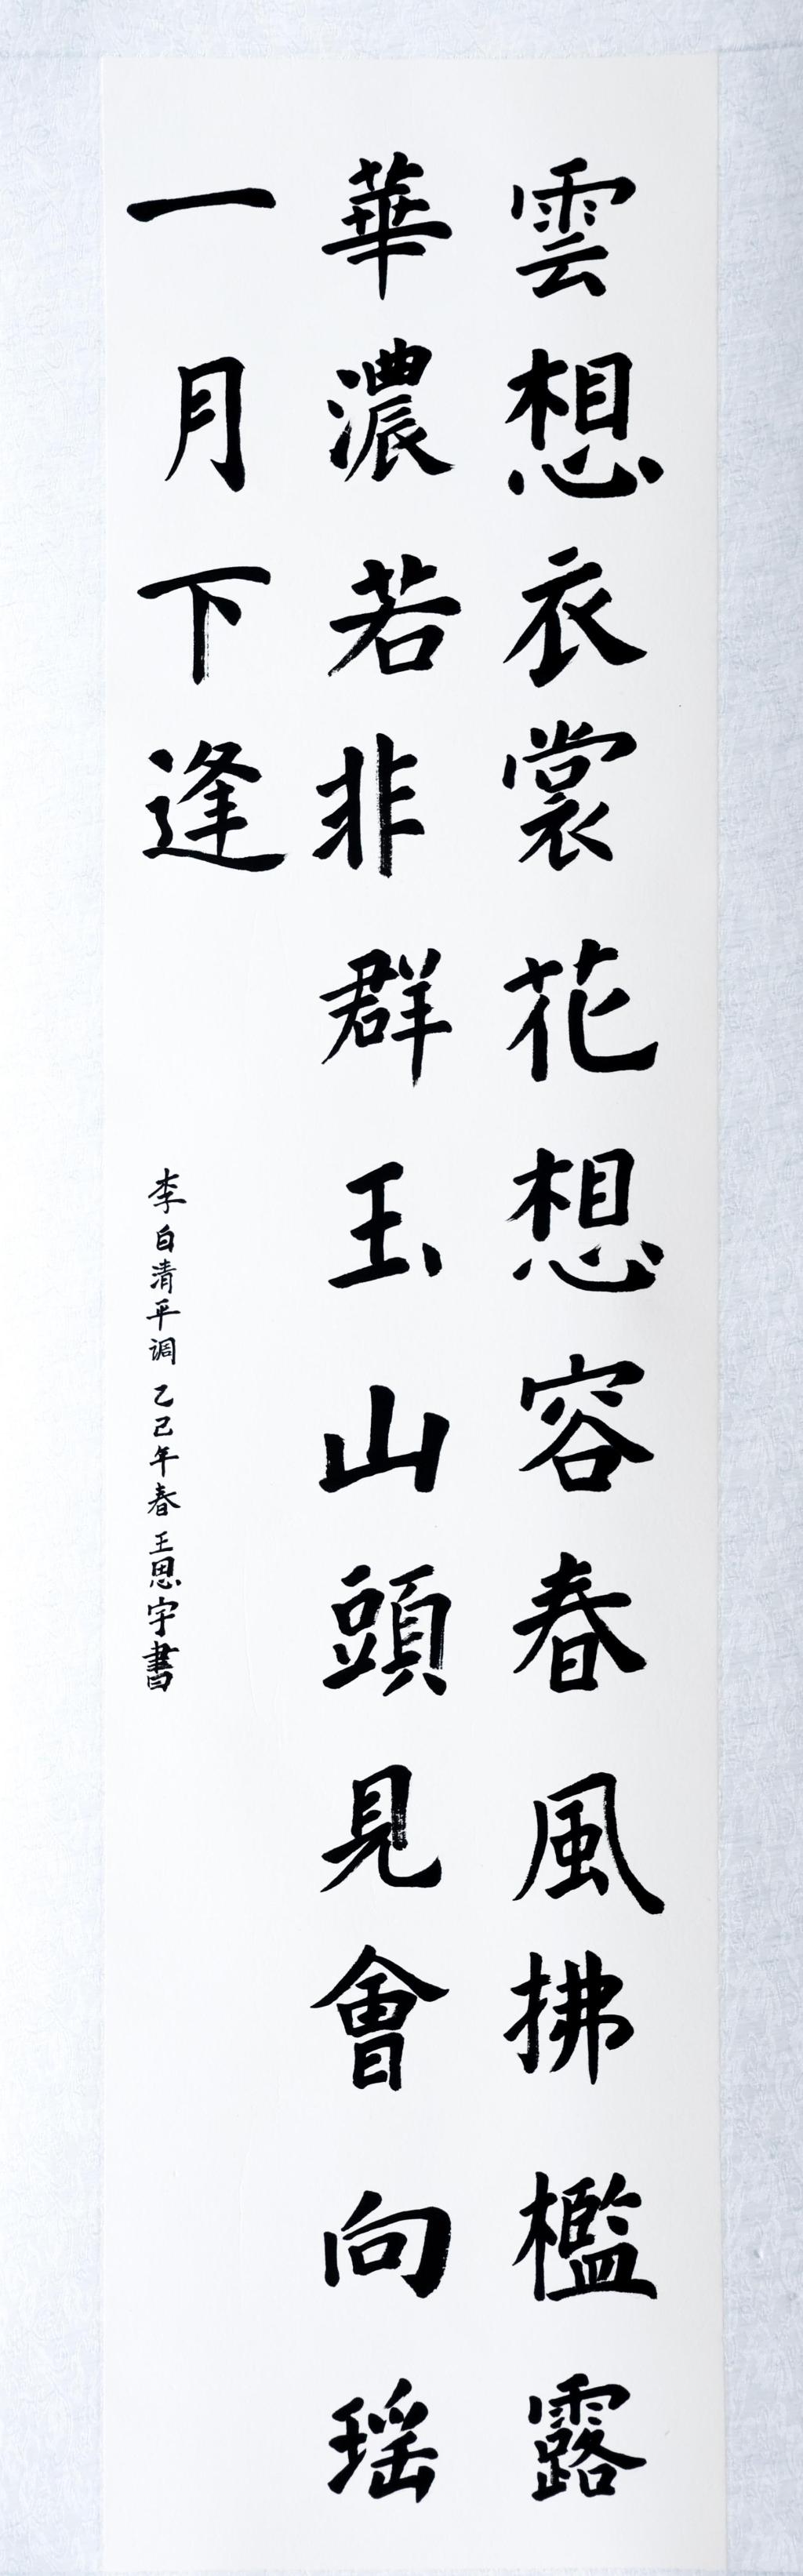 雲想衣裳花想容春風拂檻露
華濃若非群玉山頭見會向瑶
一月下逢
李白清平调 乙己年春 王思宇書